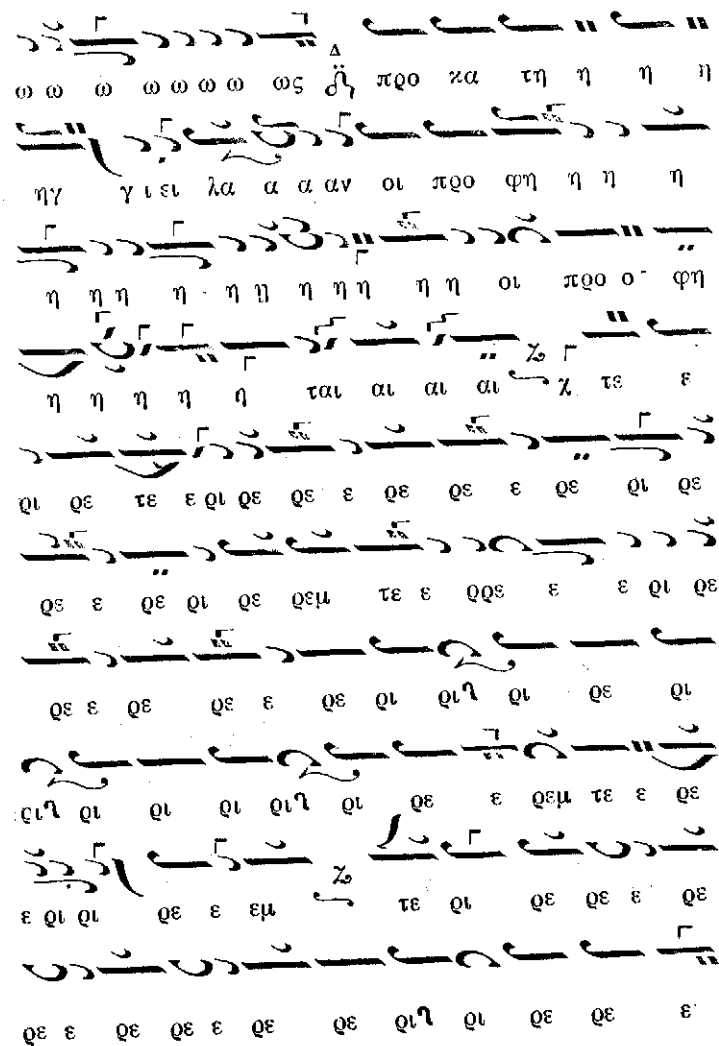 ω ω ω ω ω ω ω ως προ κα τη η η η
ηγ γ ι ει λα α α αν οι προ φη η η η
η η η η η η η η η η η οι προ ο φη
η η η η η ται αι αι αι χ τε ε
ρι ρε τε ε ρι ρε ρε ε ρε ρε ε ρε ρι ρε
ρε ε ρε ρι ρε ρεμ τε ε ρρε ε ε ρι ρε
ρε ε ρε ρε ε ρε ρι ρι ρε ρι
ρι ρι ρι ρι ρε ε ρεμ τε ε ρε
ε ρι ρι ρε ε εμ τε ρι ρε ρε ε ρε
ρε ε ρε ρε ε ρε ρε ρι ρε ρε ε